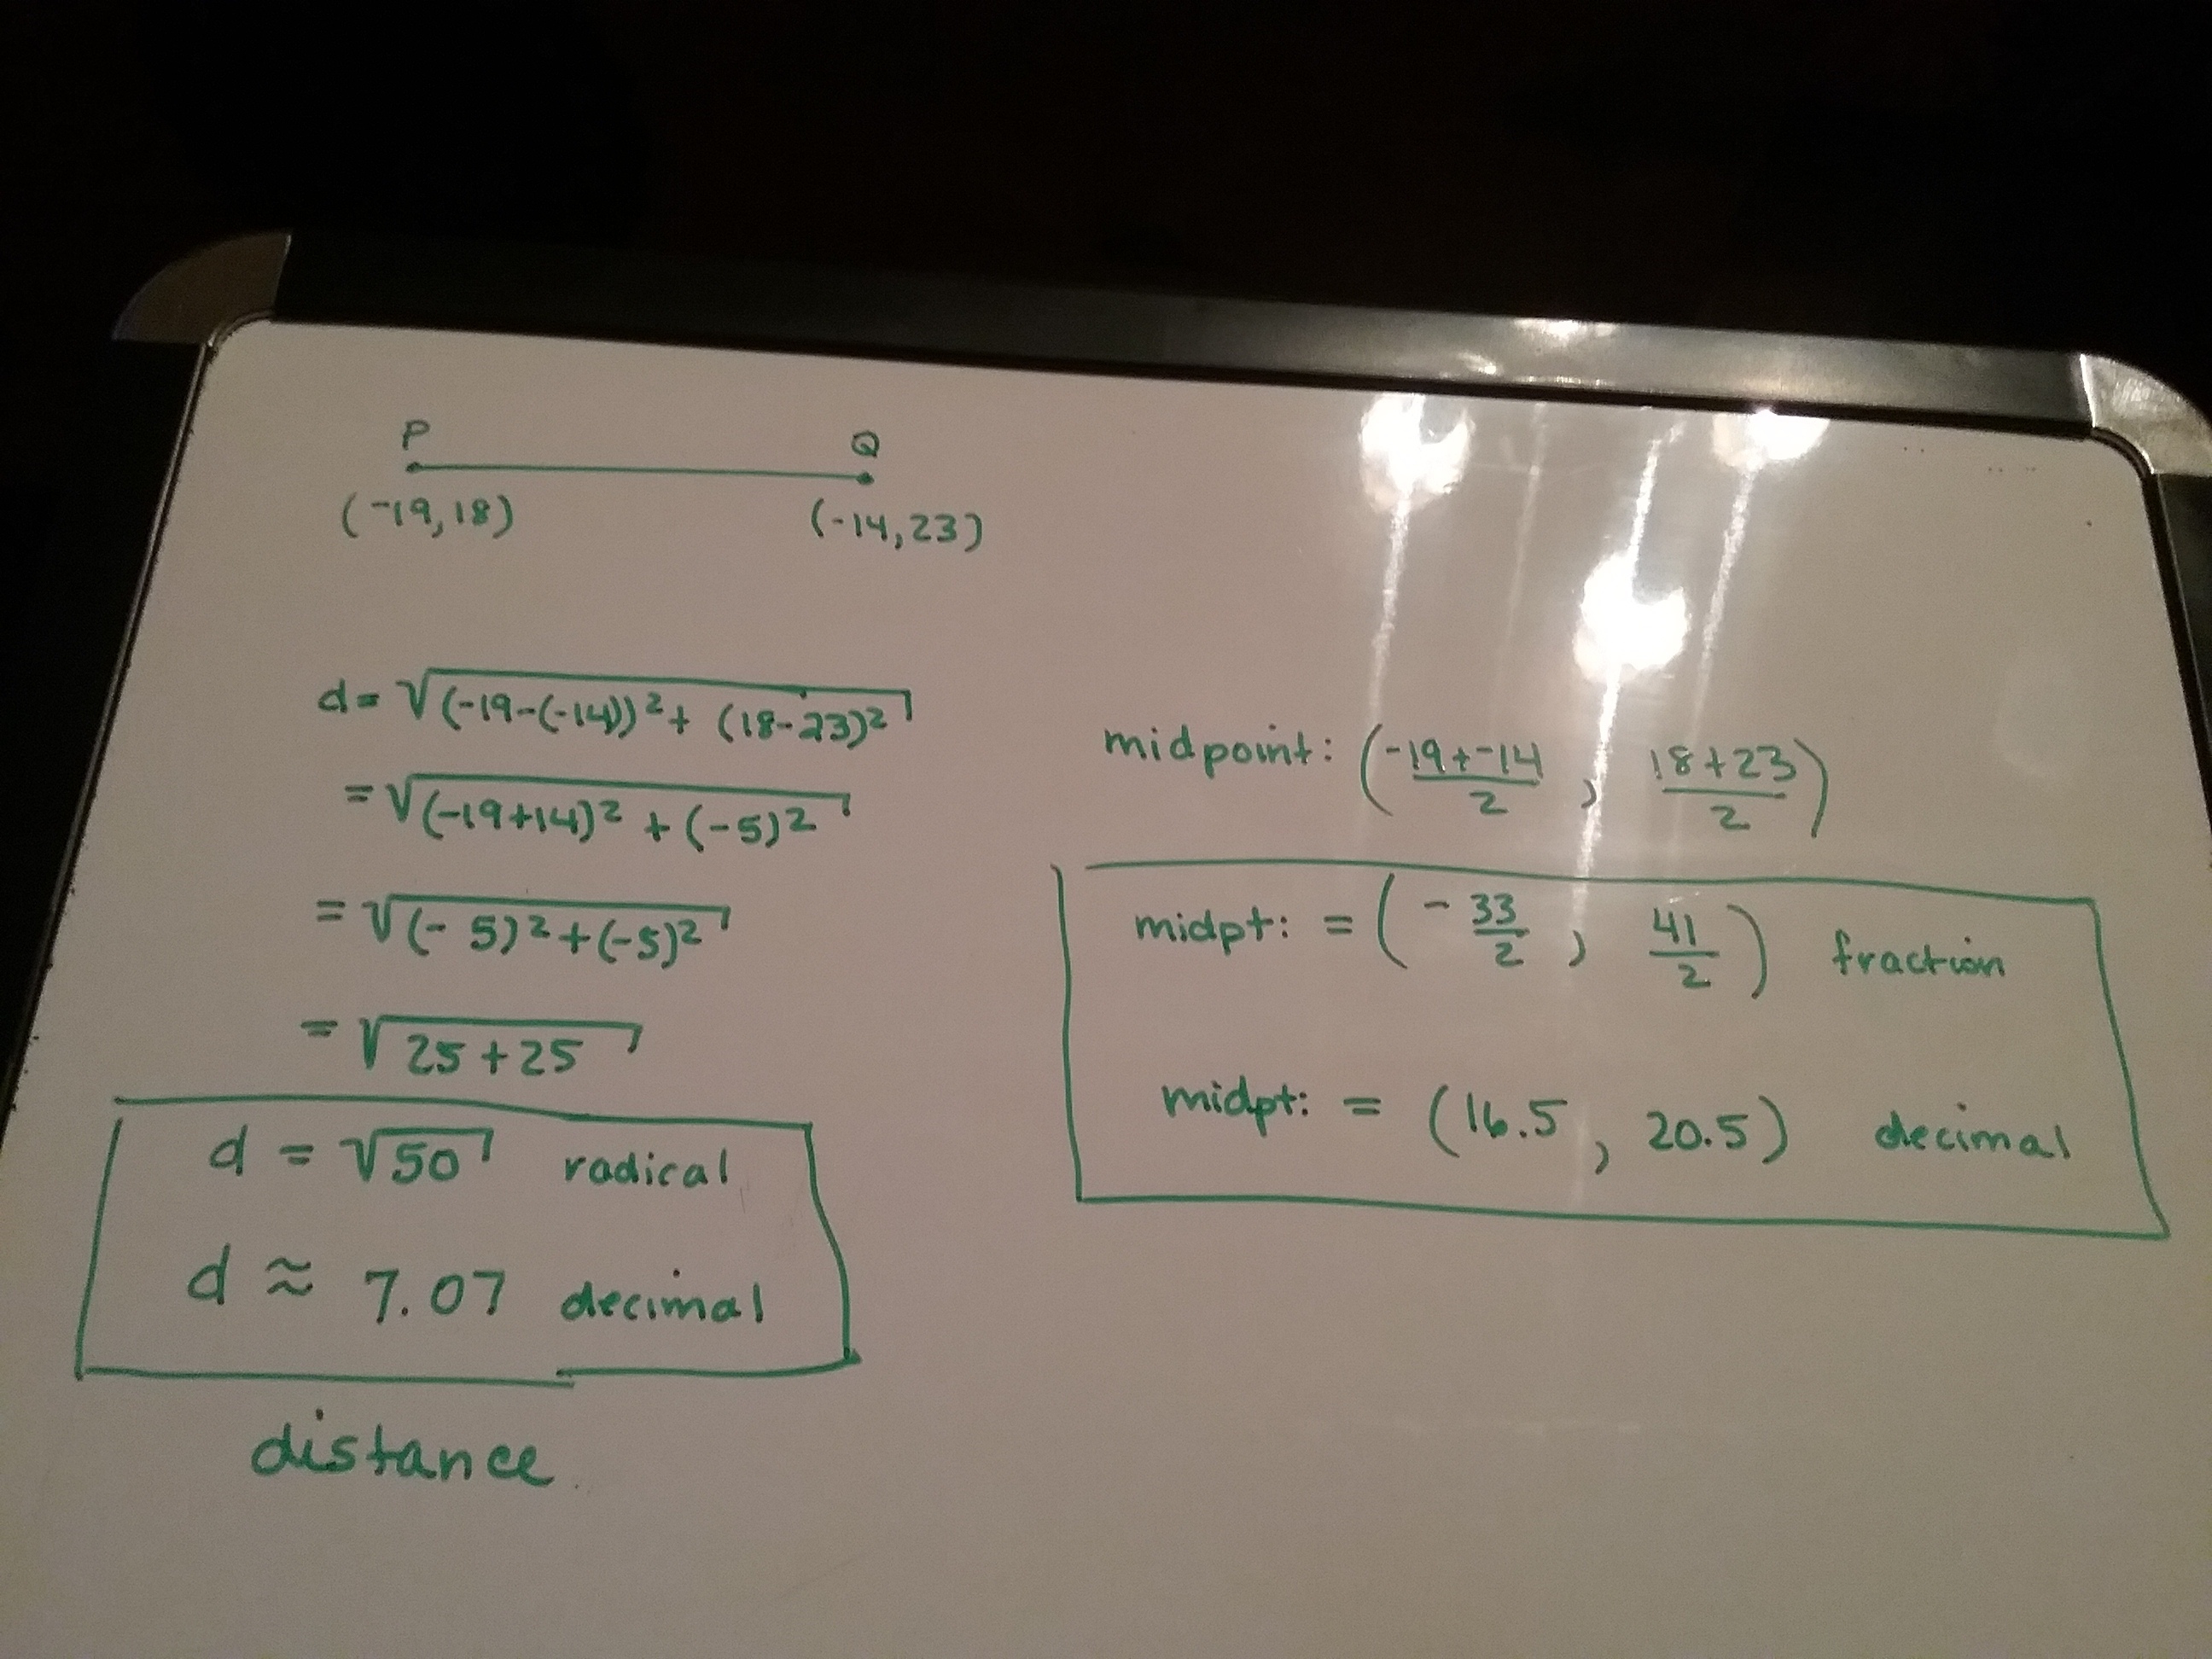 P Q
(-19,18) (-14,23)
d = √(-19-(-14))² + (18-23)²
= √(-19+14)² + (-5)²
= √(-5)² + (-5)²
= √25+25
d = √50 radical
d ≈ 7.07 decimal
distance
midpoint: (-19+-14/2 , 18+23/2)
midpt: = (-33/2 , 41/2) fraction
midpt: = (16.5 , 20.5) decimal